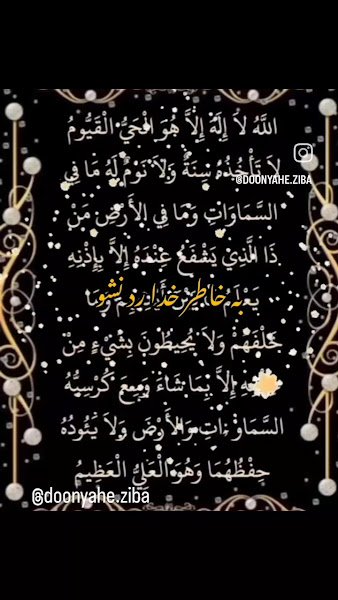 اللَّهُ لاَ إِلَهَ إِلاَّ هُوَ الْحَيُّ الْقَيُّومُ
لاَ تَأْخُذُهُ سِنَةٌ وَلاَ نَوْمٌ لَهُ مَا فِي
@DOONYAHE.ZIBA
السَّمَاوَاتِ وَمَا فِي الأَرْضِ مَنْ
ذَا الَّذِي يَشْفَعُ عِنْدَهُ إِلاَّ بِإِذْنِهِ
به خاطر خدا رد نشو
يَعْلَمُ
خَلْفَهُمْ وَلاَ يُحِيطُونَ بِشَيْءٍ مِنْ
إِلاَّ بِمَا شَاءَ وَسِعَ كُرْسِيُّهُ
السَّمَاوَاتِ وَالأَرْضَ وَلاَ يَئُودُهُ
حِفْظُهُمَا وَهُوَ الْعَلِيُّ الْعَظِيمُ
@doonyahe.ziba